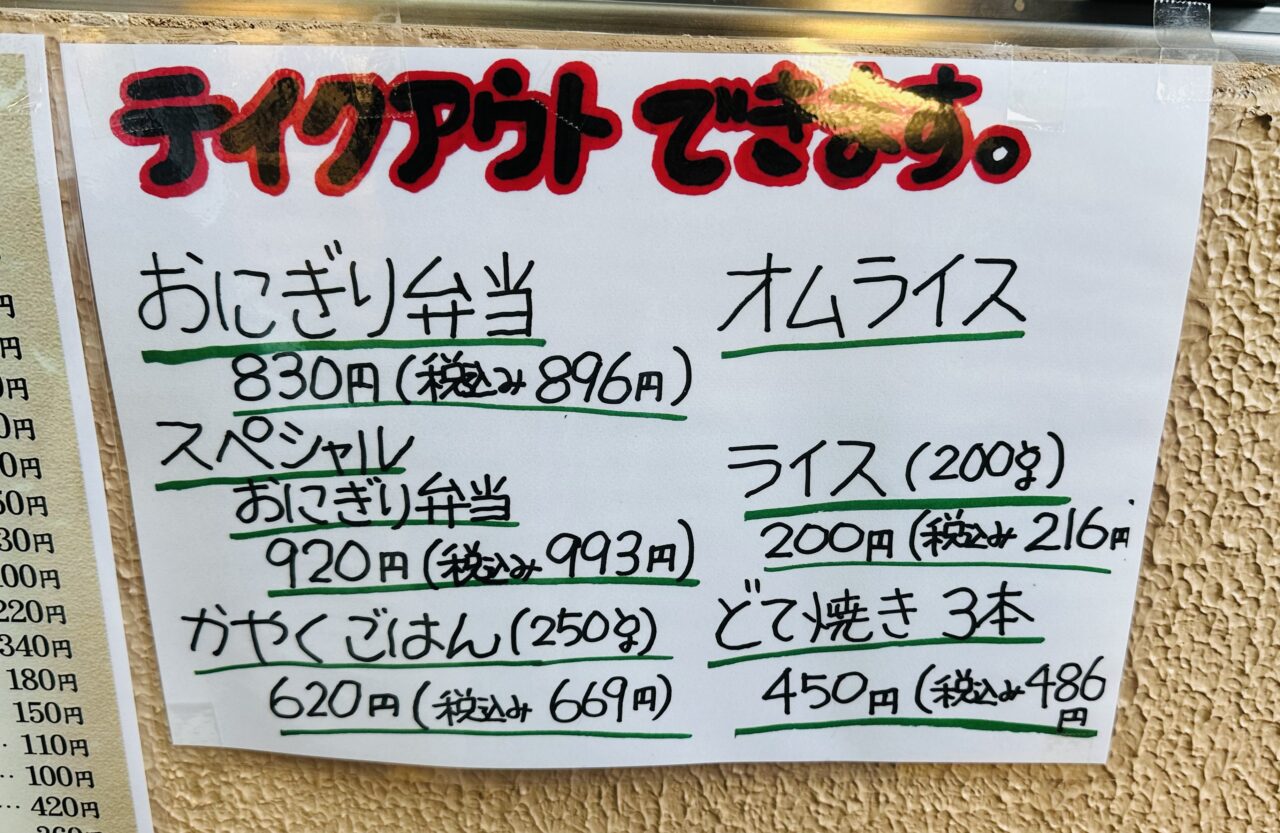 テイクアウトできます。
おにぎり弁当
830円(税込み896円)
スペシャル
おにぎり弁当
920円(税込み993円)
かやくごはん(250g)
620円(税込み669円)
オムライス
ライス(200g)
200円(税込み216円
どて焼き 3本
450円(税込み486
円
円
円
円
円
円
50円
30円
100円
220円
340円
180円
150円
110円
100円
420円